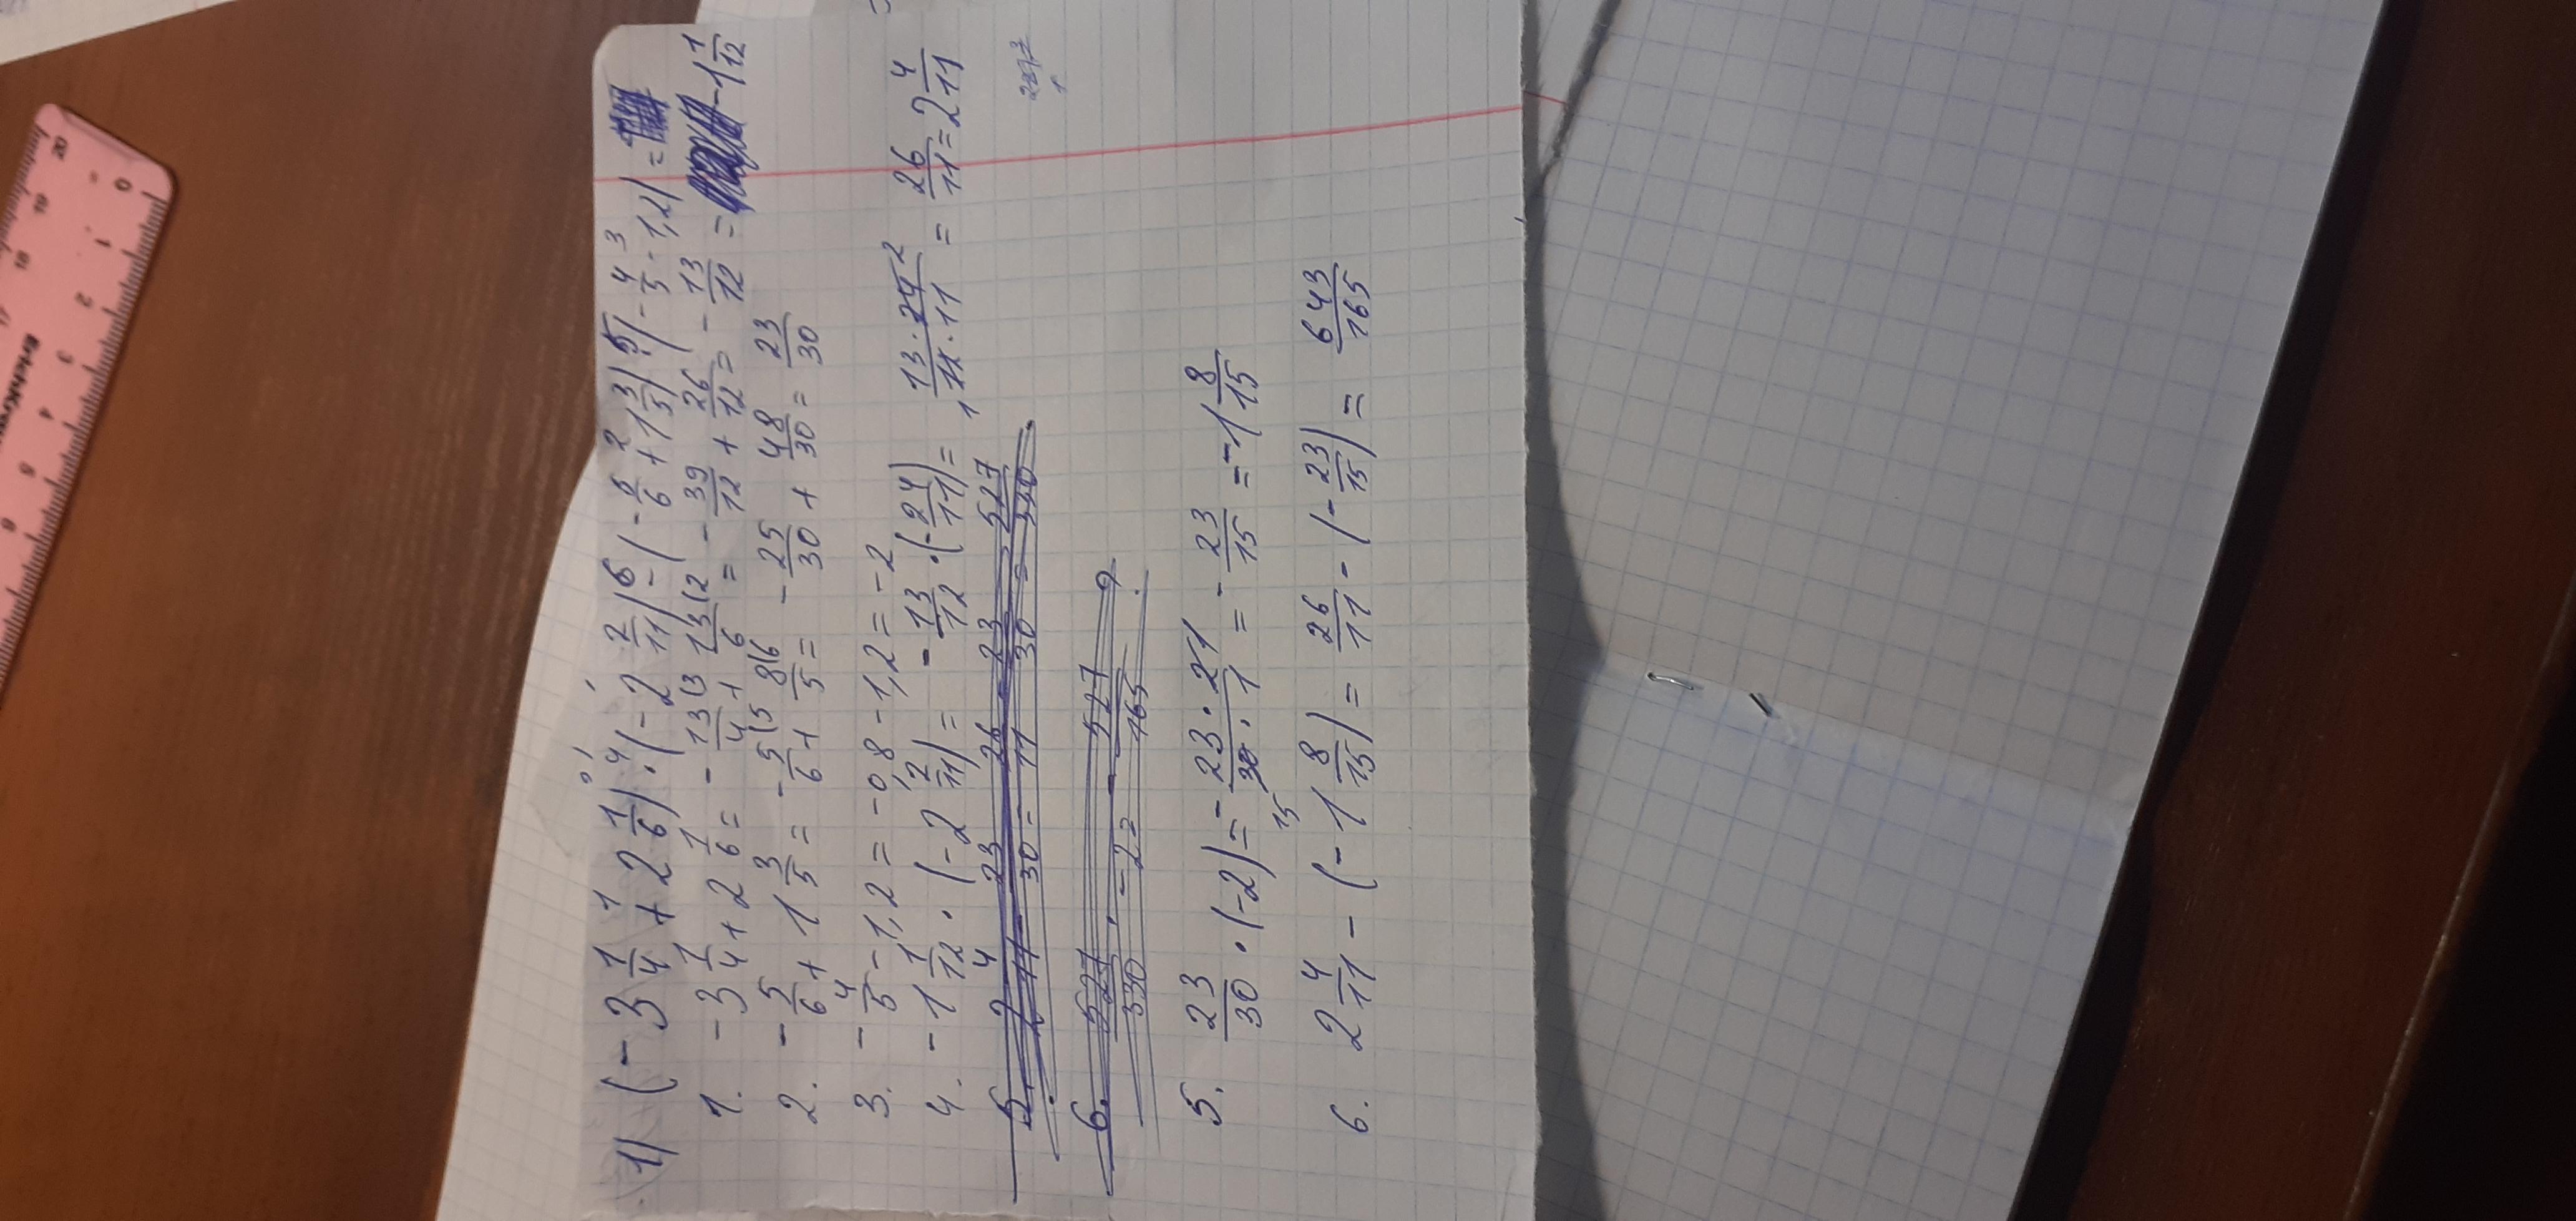 1) (-3 1/4 + 2 1/6) · (-2 2/11) - (-5/6 + 1 3/5) · (-4/5 - 1,2) =
1. -3 1/4 + 2 1/6 = -13/4 + 13/6 = -39/12 + 26/12 = -13/12 = -1 1/12
2. -5/6 + 1 3/5 = -5/6 + 8/5 = -25/30 + 48/30 = 23/30
3. -4/5 - 1,2 = -0,8 - 1,2 = -2
4. -1 1/12 · (-2 2/11) = -13/12 · (-24/11) = 13 · 24/11 · 11 = 26/11 = 2 4/11
5. 23/30 · (-2) = -23 · 2/30 · 1 = -23/15 = -1 8/15
6. 2 4/11 - (-1 8/15) = 26/11 - (-23/15) = 643/165
ErichKrause
0 1 2 3 4 5 6